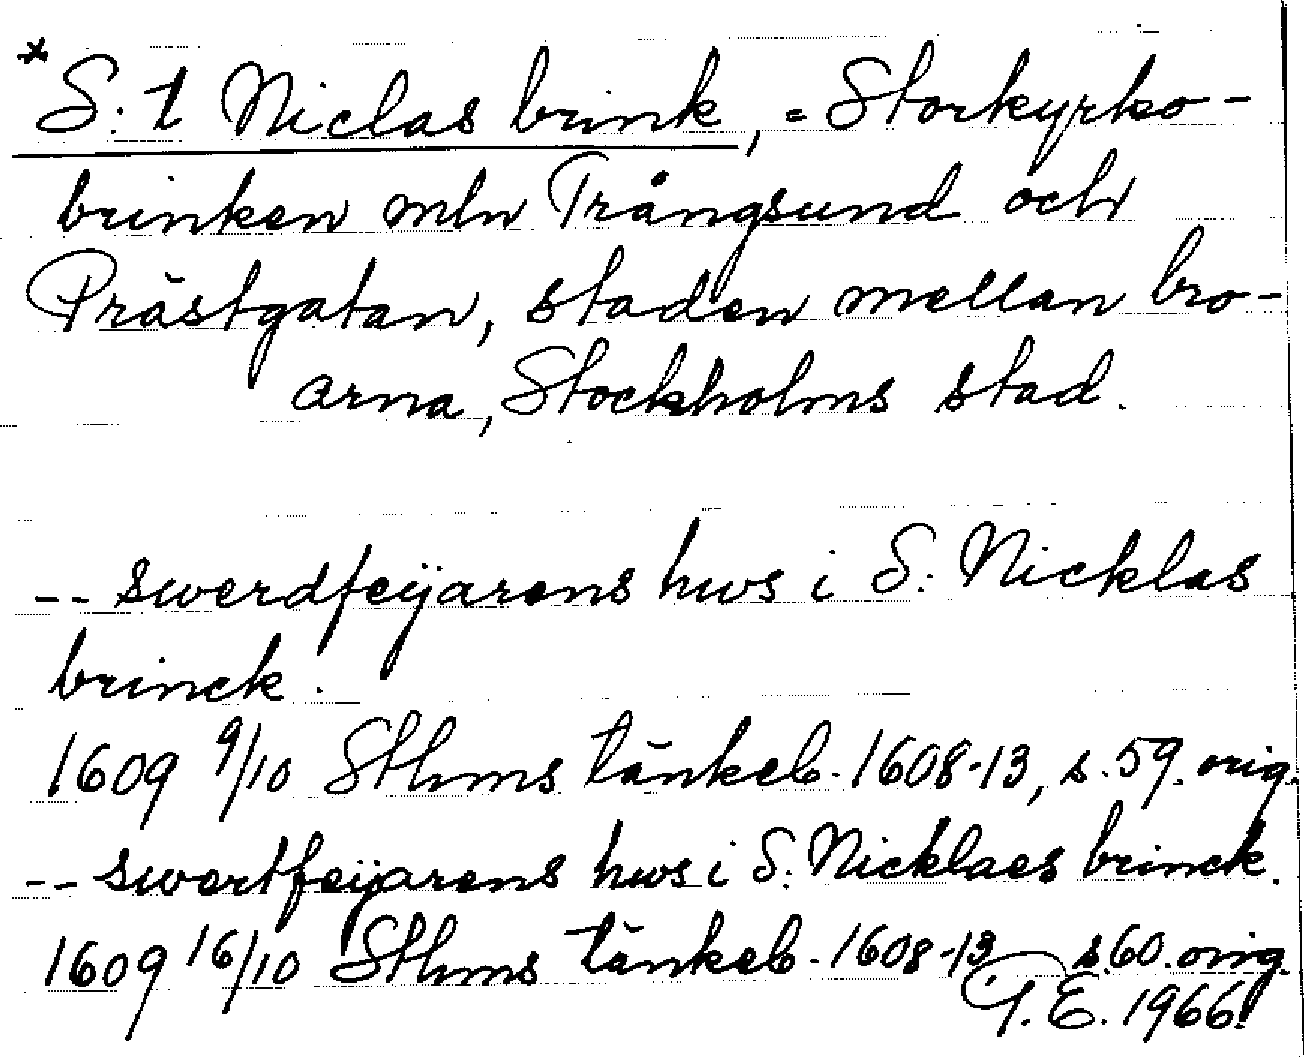 *S:t Niclas brink, = Storkyrko-
brinken mln Trångsund och
Prästgatan, staden mellan bro-
arna, Stockholms stad.
-- swerdfeijarens hws i S: Nicklas
brinck.
1609 9/10 Sthms tänkeb. 1608-13, s.59. orig.
-- swertfeijarens hws i S: Nicklaes brinck.
1609 16/10 Sthms tänkeb. 1608-13 s.60. orig.
G.E. 1966.